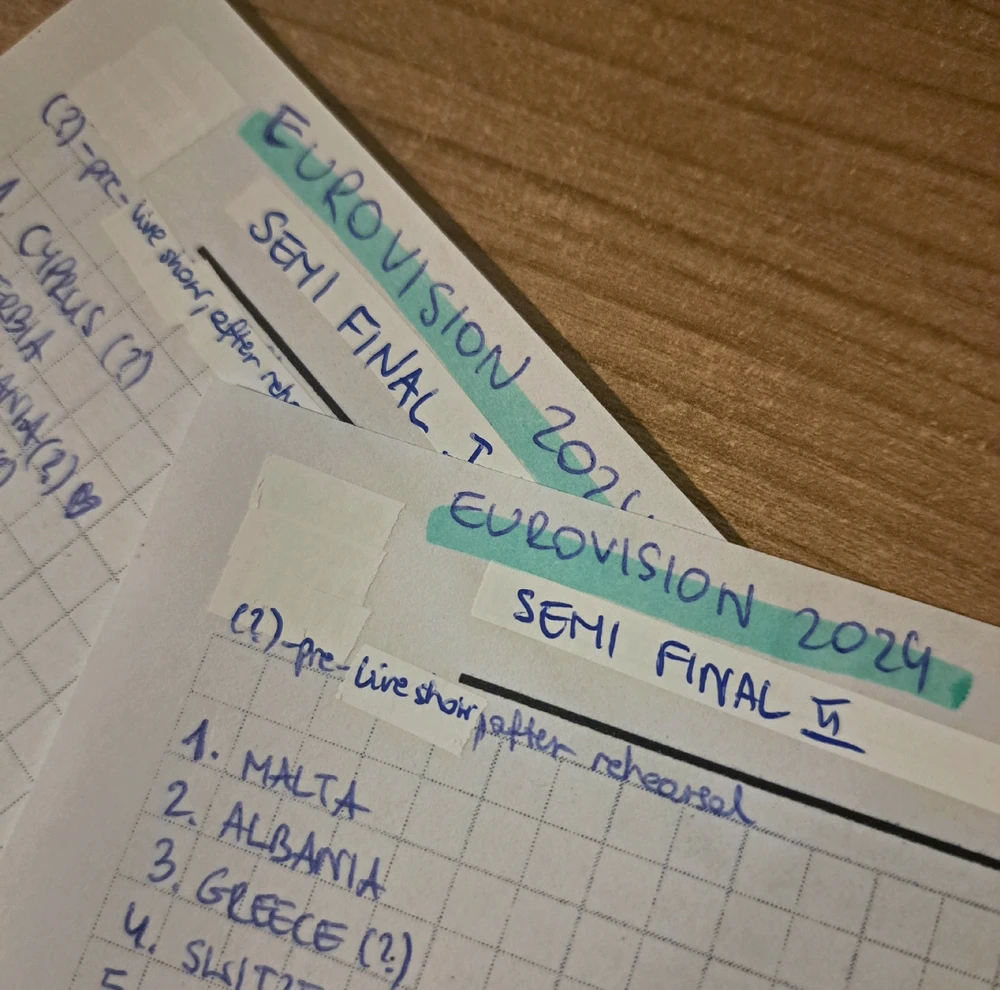 EUROVISION 202
SEMI FINAL I
(?)-pre-live show, after reh
1. CYPRUS (?)
ERBIA
ANIA(?)
?)
EUROVISION 2024
SEMI FINAL II
(?)-pre-live show, after rehearsal
1. MALTA
2. ALBANIA
3. GREECE (?)
4. SWITZE
5